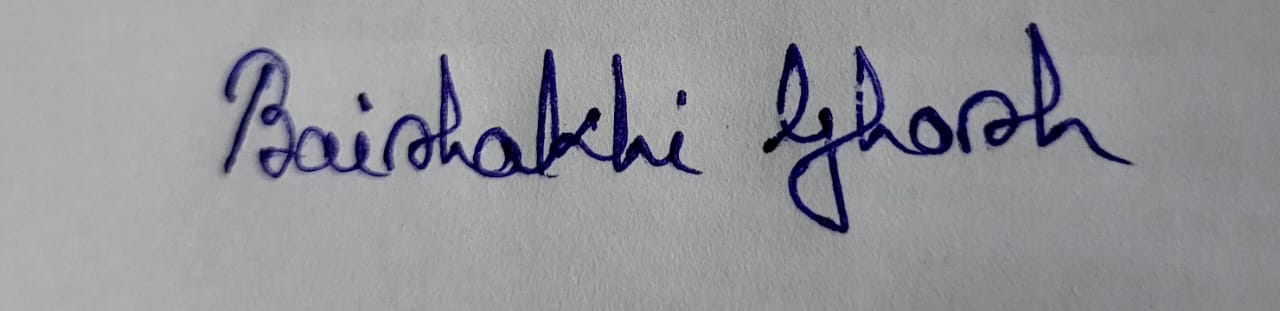 Baishakhi Ghosh